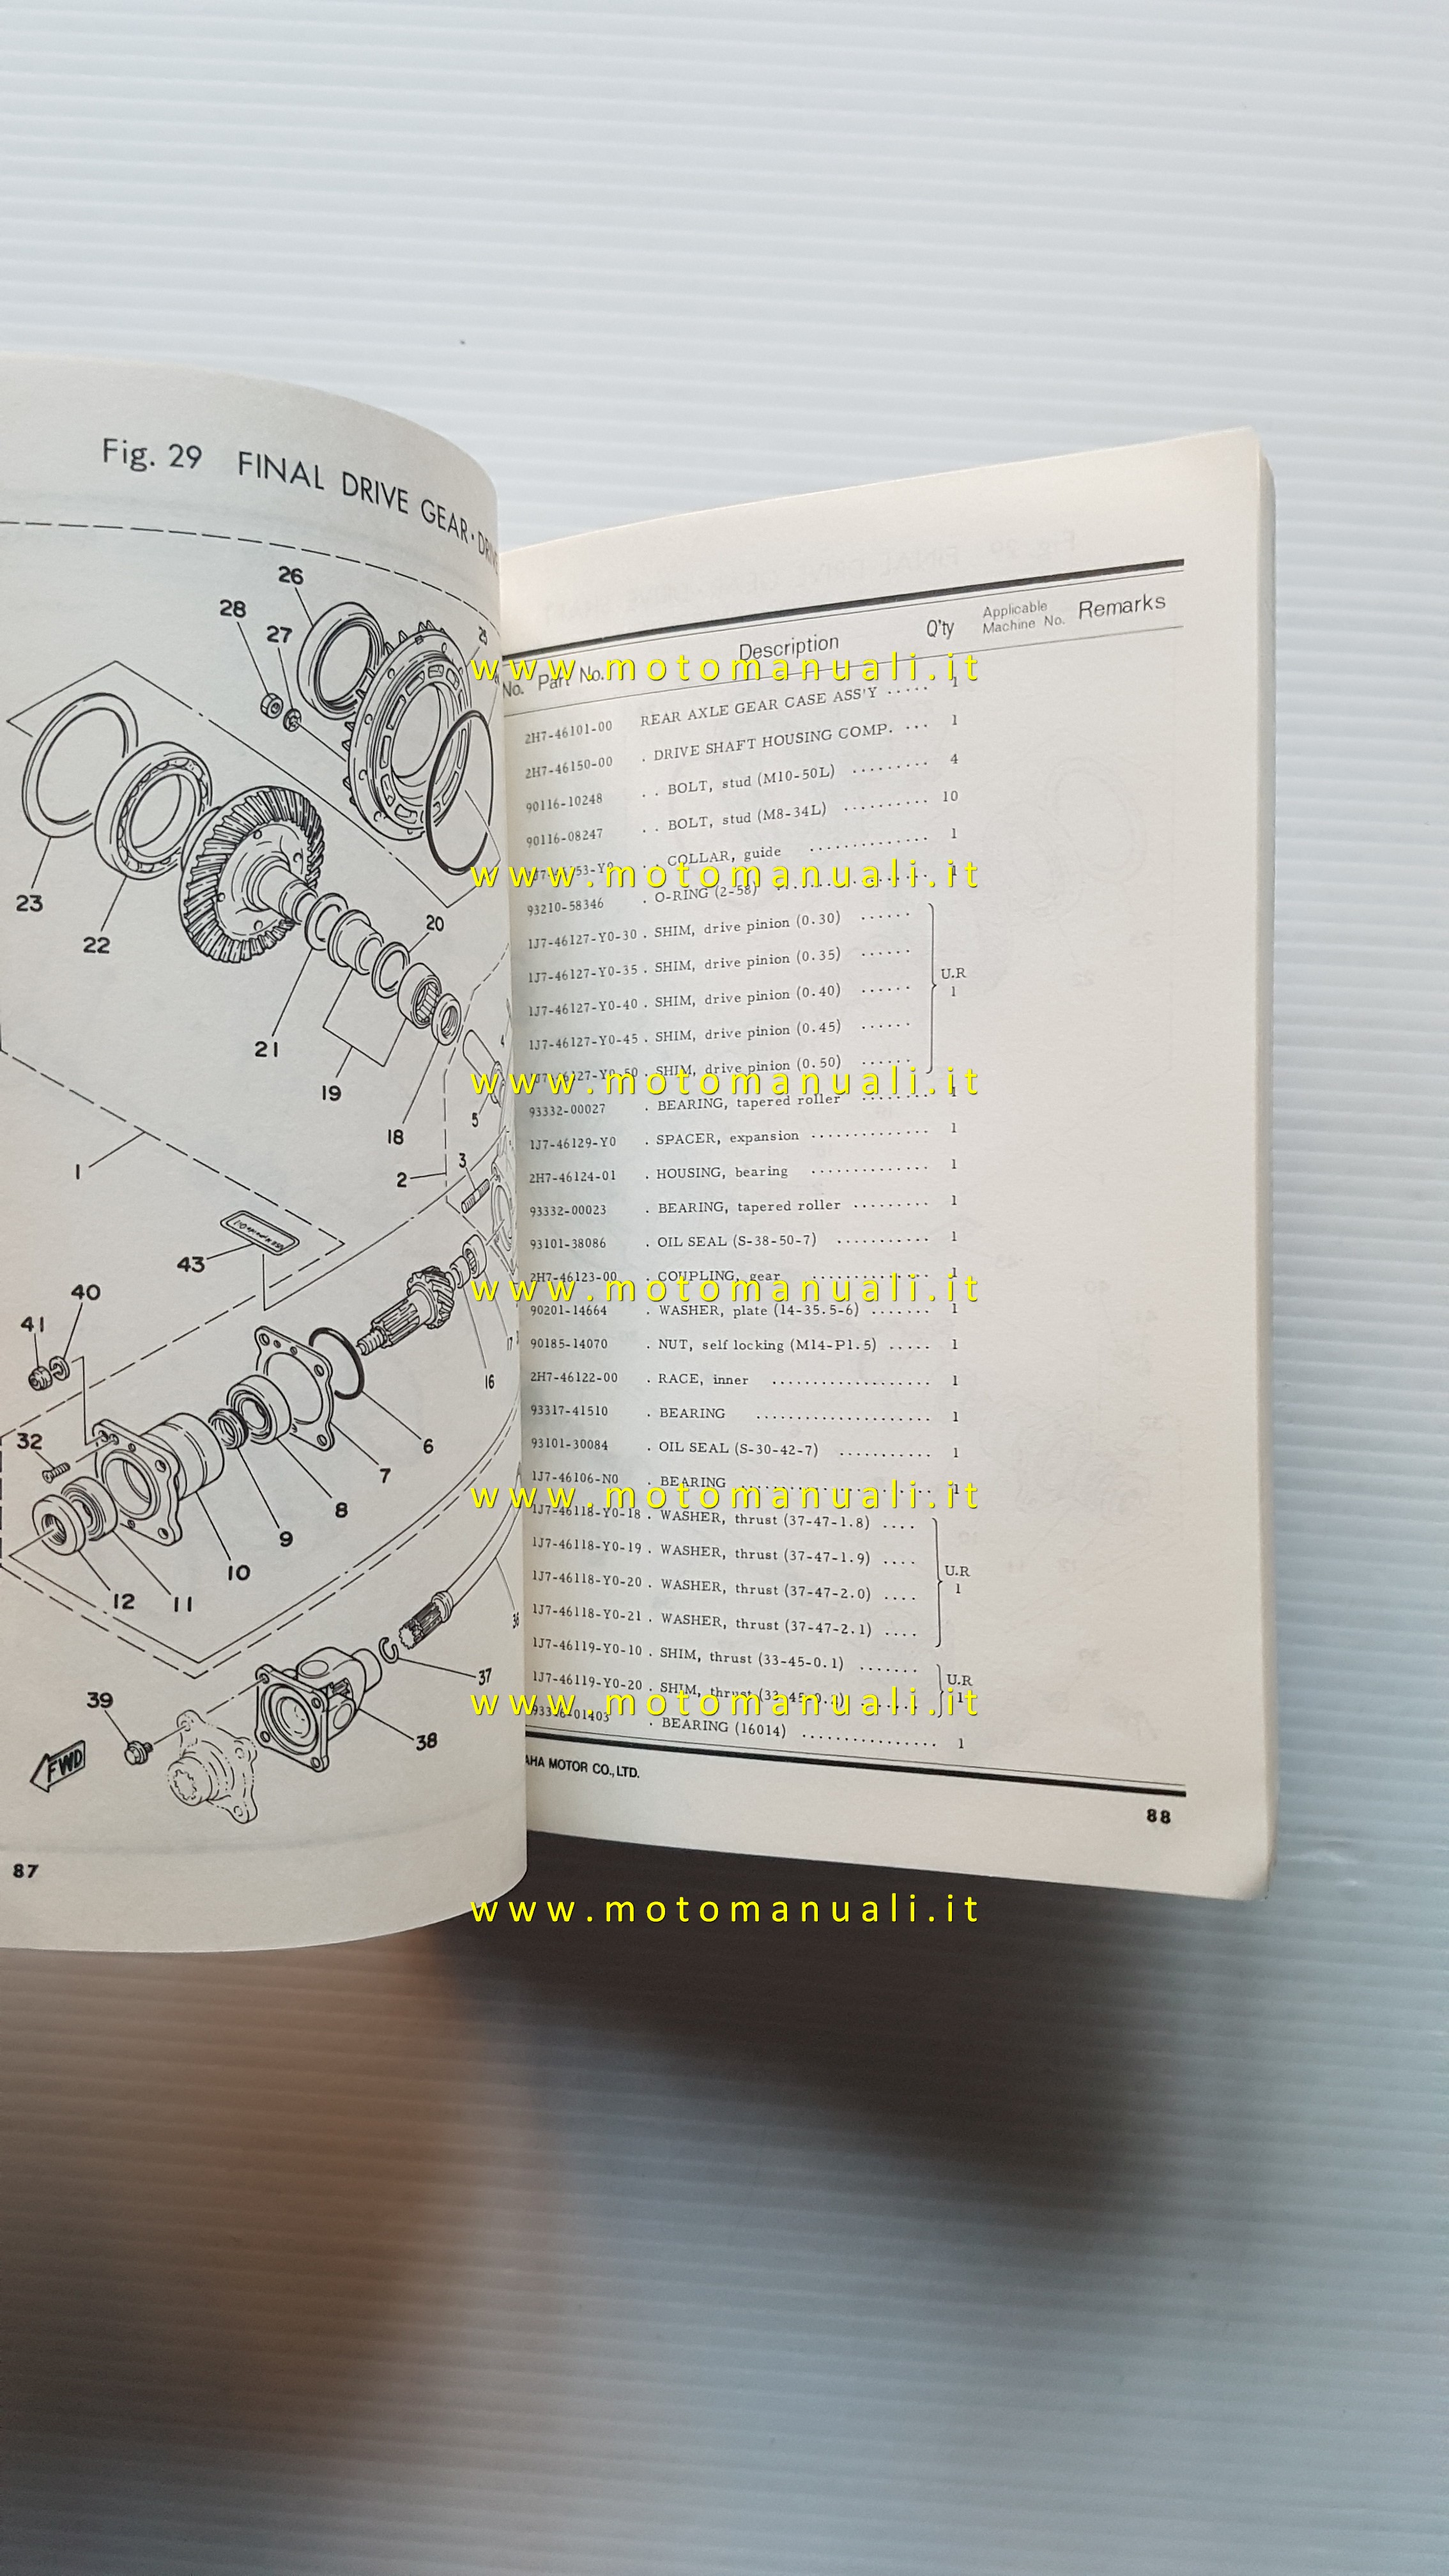 Fig. 29 FINAL DRIVE GEAR·
26
28
27
25
23
22
20
21
19
18
4
5
1
2
3
43
40
41
17
16
32
6
7
8
9
10
12
11
36
37
39
38
FWD
87
No. Part No. Description Q'ty Applicable Machine No. Remarks
2H7-46101-00 REAR AXLE GEAR CASE ASS'Y ..... 1
2H7-46150-00 . DRIVE SHAFT HOUSING COMP. ... 1
90116-10248 . . BOLT, stud (M10-50L) ......... 4
90116-08247 . . BOLT, stud (M8-34L) .......... 10
. . COLLAR, guide ............. 1
93210-58346 . O-RING (2-58) ................ 1
1J7-46127-Y0-30 . SHIM, drive pinion (0.30) ......
1J7-46127-Y0-35 . SHIM, drive pinion (0.35) ......
1J7-46127-Y0-40 . SHIM, drive pinion (0.40) ......
U.R
1
1J7-46127-Y0-45 . SHIM, drive pinion (0.45) ......
1J7-46127-Y0-50 . SHIM, drive pinion (0.50) ......
93332-00027 . BEARING, tapered roller ........ 1
1J7-46129-Y0 . SPACER, expansion .............. 1
2H7-46124-01 . HOUSING, bearing .............. 1
93332-00023 . BEARING, tapered roller ......... 1
93101-38086 . OIL SEAL (S-38-50-7) ........... 1
2H7-46123-00 . COUPLING, gear .............. 1
90201-14664 . WASHER, plate (14-35.5-6) ....... 1
90185-14070 . NUT, self locking (M14-P1.5) ..... 1
2H7-46122-00 . RACE, inner ................... 1
93317-41510 . BEARING ..................... 1
93101-30084 . OIL SEAL (S-30-42-7) ........... 1
1J7-46106-N0 . BEARING ..................... 1
1J7-46118-Y0-18 . WASHER, thrust (37-47-1.8) ....
1J7-46118-Y0-19 . WASHER, thrust (37-47-1.9) ....
1J7-46118-Y0-20 . WASHER, thrust (37-47-2.0) ....
U.R
1
1J7-46118-Y0-21 . WASHER, thrust (37-47-2.1) ....
1J7-46119-Y0-10 . SHIM, thrust (33-45-0.1) .......
1J7-46119-Y0-20 . SHIM, thrust .......
U.R
1
. BEARING (16014) ................ 1
MOTOR CO., LTD.
88
www.motomanuali.it
www.motomanuali.it
www.motomanuali.it
www.motomanuali.it
www.motomanuali.it
www.motomanuali.it
www.motomanuali.it